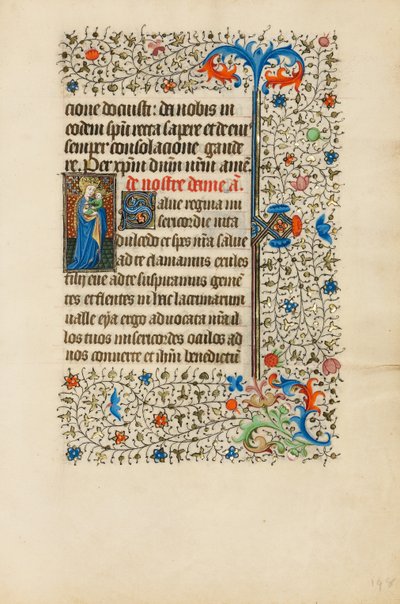 cione docuisti: da nobis in
eodem spu recta sapere et de eius
semper consolacione gaude
re. Per xpm dnm nrm amē.
de nostre dame a.
Salue regina mi
sericordie uita
dulcedo et spes nra salue
ad te clamamus exules
filij eue ad te suspiramus gemē
tes et flentes in hac lacrimarum
ualle eya ergo aduocata nra il
los tuos misericordes oculos ad
nos conuerte et ihm benedictū
198